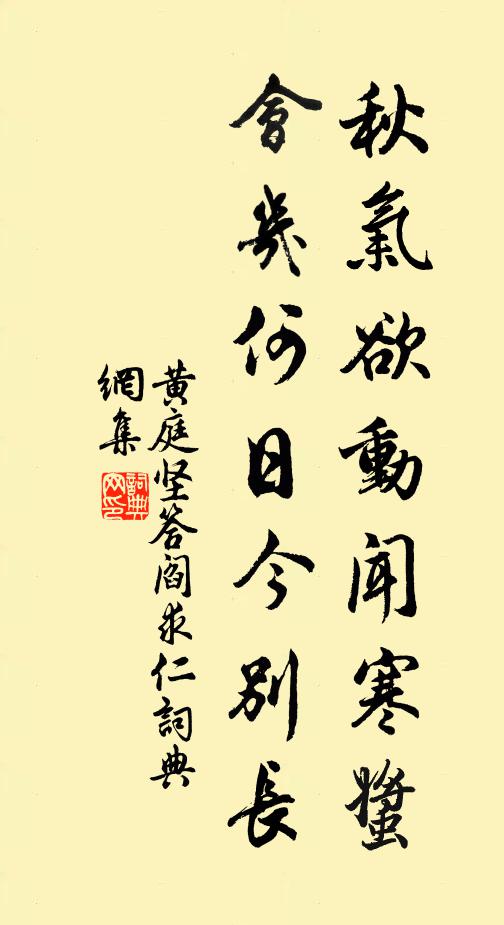 秋氣欲動聞寒螿
會幾何日今別長
黃庭坚答閻求仁詞典
網集
詞典网印